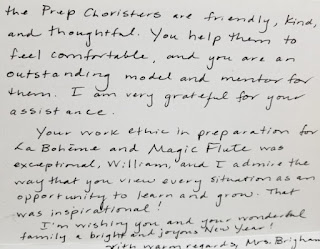 the Prep Choristers are friendly, kind,
and thoughtful. You help them to
feel comfortable, and you are an
outstanding model and mentor for
them. I am very grateful for your
assistance.
Your work ethic in preparation for
La Bohème and Magic Flute was
exceptional, William, and I admire the
way that you view every situation as an
opportunity to learn and grow. That
was inspirational!
I'm wishing you and your wonderful
family a bright and joyous New Year!
with warm regards, Mrs. Brigham